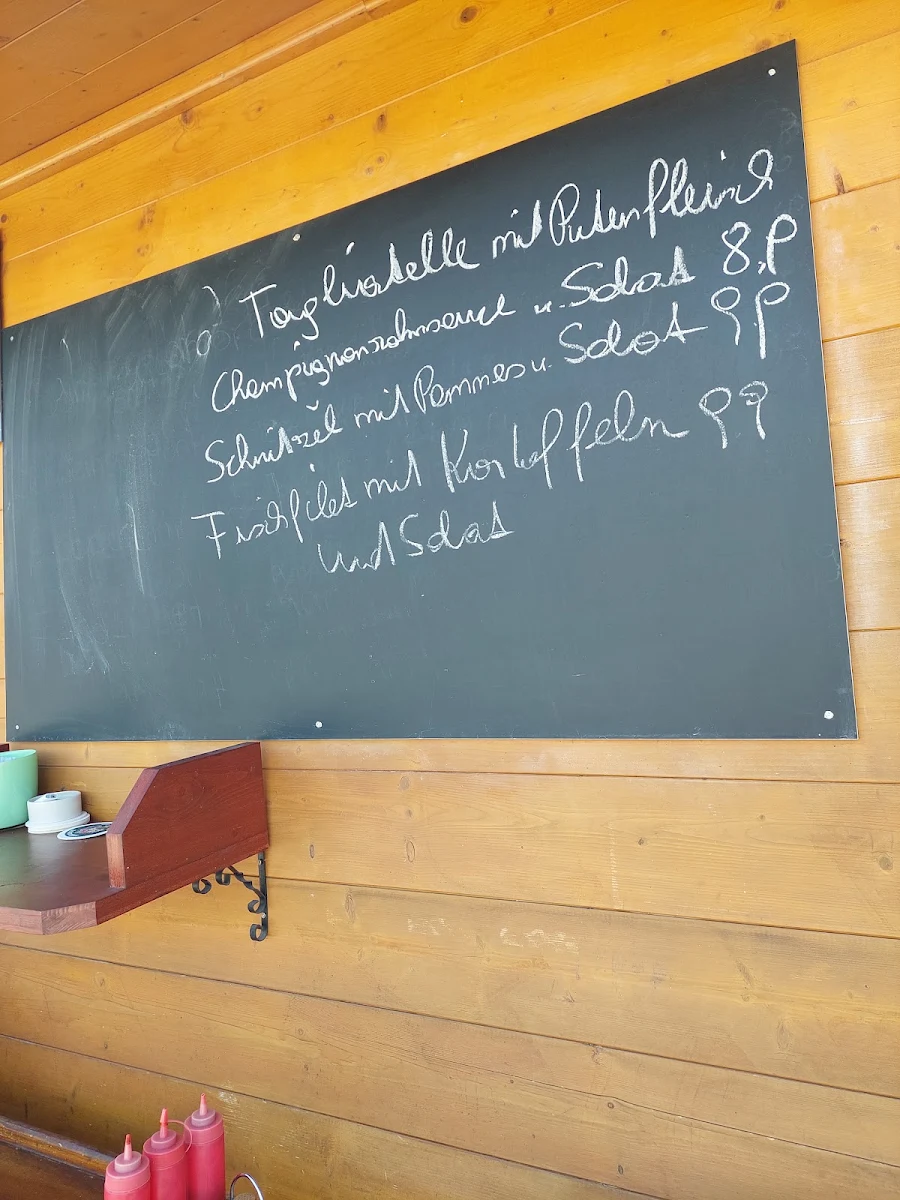 Tagliatelle mit Putenfleisch
Champignonrahmsauce u. Salat 8,9
Schnitzel mit Pommes u. Salat 9,9
Fischfilet mit Kartoffeln 9,9
und Salat